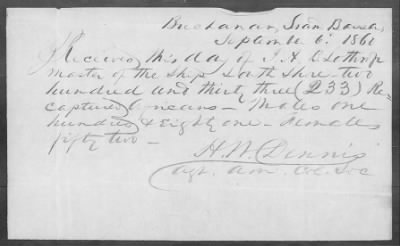 Buchanan, Gran Bassa,
September 6: 1860
Received this day of J. A. Lothrop
master of the Ship South Shore - two
hundred and thirty three (233) Re-
captured - Males one
hundred & Eighty one - Females
fifty two -
H. W. Dennis
Agt. Am. Col. Soc